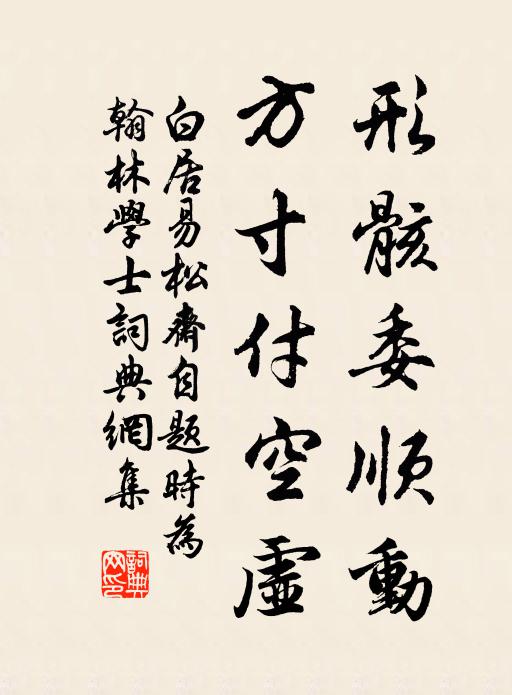 形骸委順動
方寸付空虛
白居易松齋自題時為
翰林學士詞典網集
詞典
網印